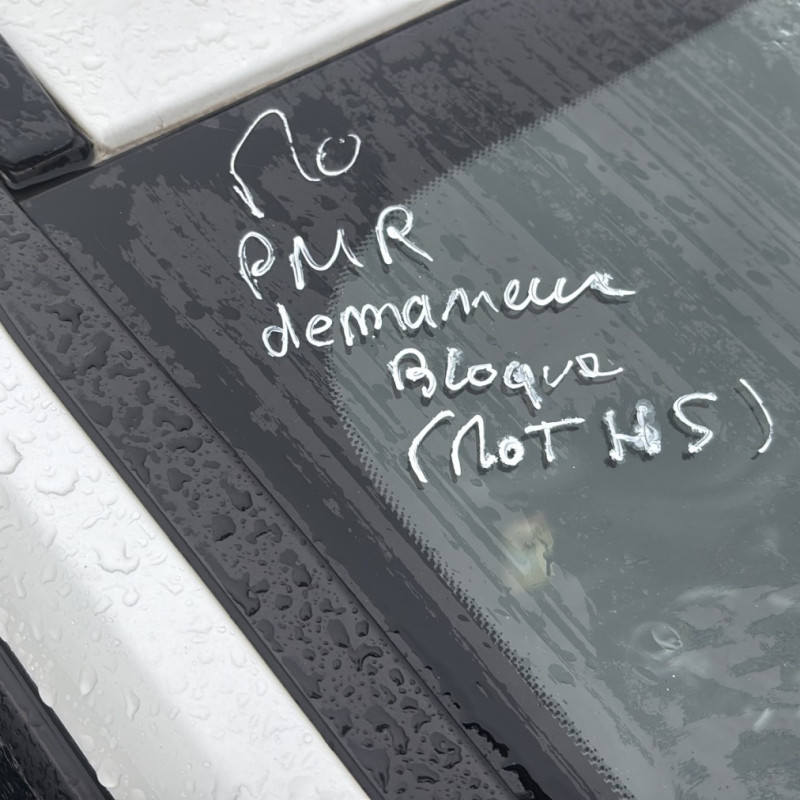 Mo
PMR
demarreur
Bloque
(MoT HS)